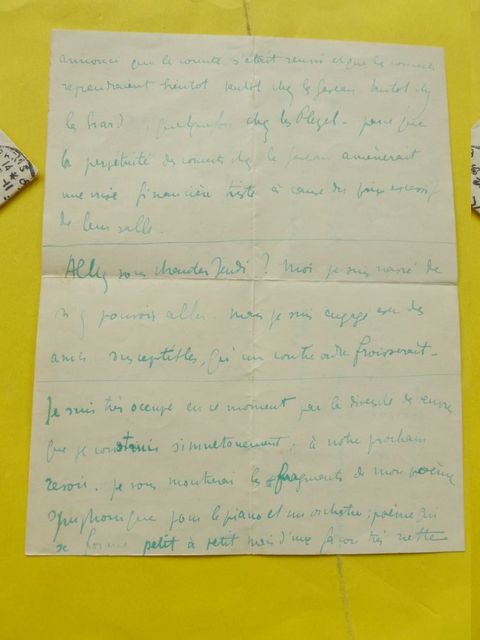 annoncer que le comité s'était réuni et que les concerts
reprendraient bientôt tantôt chez les Gaveau tantôt chez
les quelquefois chez les Pleyel. parce que
la perpétuité des concerts chez les Gaveau amènerait
une crise financière triste à cause du prix excessif
de leur salle.
Allez vous chanter Jeudi ? Moi je suis navré de
n'y pouvoir aller. mais je suis engagé avec des
amis susceptibles, qu'un contre ordre froisserait.
Je suis très occupé en ce moment par la diversité de
que je construis simultanément; à notre prochain
revoir. je vous montrerai les fragments de mon poème
symphonique pour le piano et un orchestre; poème qui
se forme petit à petit mais d'une façon très nette